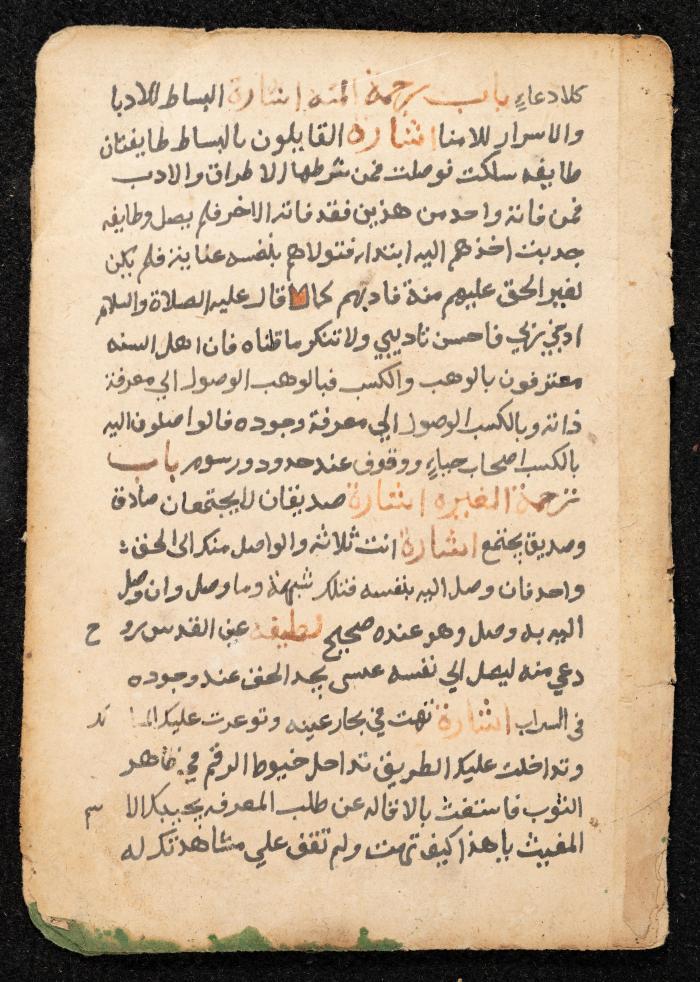 كلادعاء باب ترجمة المنه اشارة البساط للادبا
والاسرار للامنا اشارة القايلون بالبساط طايفتان
طايفه سلكت فوصلت فمن شرطها الاطراق والادب
فمن فاته واحد من هذين فقد فاته الاخر فلم يصل وطايفه
جذبت اخذهم اليه ابتدا، فتولاهم بنفسه عناية فلم يكن
لغير الحق عليهم منة فادبهم كما قال عليه الصلاة والسلام
ادبني ربي فاحسن تاديبي ولا تنكر ما قلناه فان اهل السنه
معترفون بالوهب والكسب فبالوهب الوصول الي معرفة
ذاته وبالكسب الوصول الي معرفة وجوده فالواصلون اليه
بالكسب اصحاب حياء ووقوف عند حدود ورسوم باب
ترجمة الغيره اشارة صديقان لا يجتمعان صادق
وصديق يجتمع اشارة انت ثلاثة والواصل منك الى الحق
واحد فان وصل اليه بنفسه فتلك شبهة وما وصل وان وصل
اليه به وصل وهو عنده صحيح لطيفه عين القدس رو ح
دعي منه ليصل الي نفسه عسى يجد الحق عند وجوده
في السراب اشارة تهت في بحار عينه وتوعرت عليك
وتداخلت عليك الطريق تداخل خيوط الرقم في ظاهر
الثوب فاستغث بالاقاله عن طلب المعرفه يجيبك الا سم
المغيث يا هذا كيف تهت ولم تقف علي مشاهدتك له